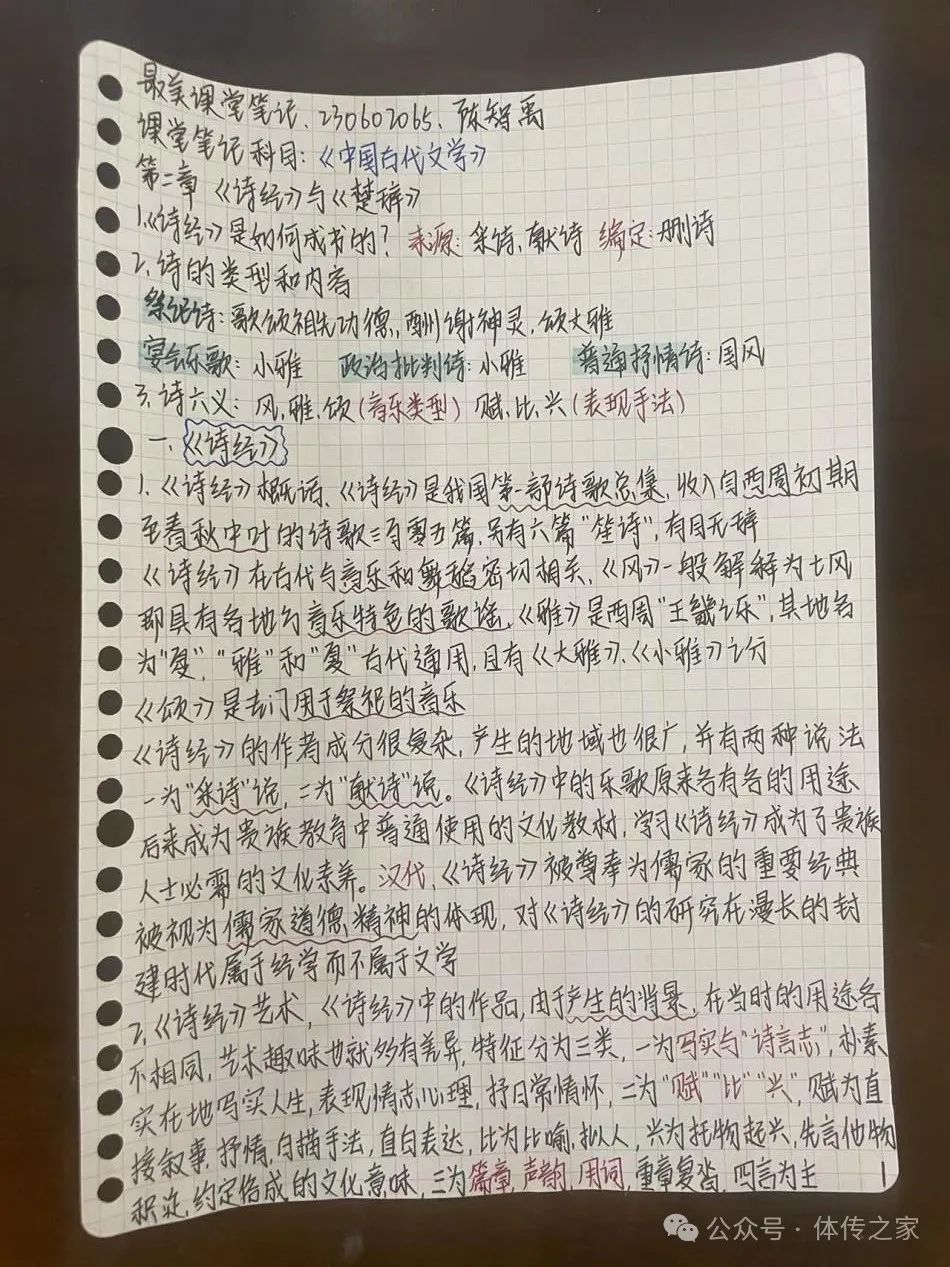 最美课堂笔记、230602065、陈智禹
课堂笔记科目:《中国古代文学》
第二章 《诗经》与《楚辞》
1.《诗经》是如何成书的? 来源:采诗、献诗 编定:删诗
2、诗的类型和内容
祭祀诗:歌颂祖先功德,酬谢神灵,颂大雅
宴会乐歌:小雅 政治批判诗:小雅 普通抒情诗:国风
3、诗六义:风、雅、颂(音乐类型) 赋、比、兴(表现手法)
一、《诗经》
1、《诗经》概话、《诗经》是我国第一部诗歌总集,收入自西周初期
至春秋中叶的诗歌三百零五篇,另有六篇“笙诗”,有目无辞
《诗经》在古代与音乐和舞蹈密切相关,《风》一般解释为土风
即具有各地方音乐特色的歌谣,《雅》是西周“王畿之乐”,其地名
为“夏”,“雅”和“夏”古代通用,且有《大雅》、《小雅》之分
《颂》是专门用于祭祀的音乐
《诗经》的作者成分很复杂,产生的地域也很广,并有两种说法
一为“采诗”说,二为“献诗”说。《诗经》中的乐歌原来各有各的用途
后来成为贵族教育中普通使用的文化教材,学习《诗经》成为了贵族
人士必需的文化素养。汉代,《诗经》被尊奉为儒家的重要经典
被视为儒家道德精神的体现,对《诗经》的研究在漫长的封
建时代属于经学而不属于文学
2、《诗经》艺术,《诗经》中的作品,由于产生的背景,在当时的用途各
不相同,艺术趣味也就多有差异,特征分为三类,一为写实与“诗言志”,朴素
实在地写实人生,表现情志心理,抒日常情怀,二为“赋”“比”“兴”,赋为直
接叙事、抒情,白描手法,直白表达,比为比喻、拟人,兴为托物起兴,先言他物
积淀,约定俗成的文化意味,三为篇章,声韵,用词,重章复沓,四言为主
1
公众号·体传之家